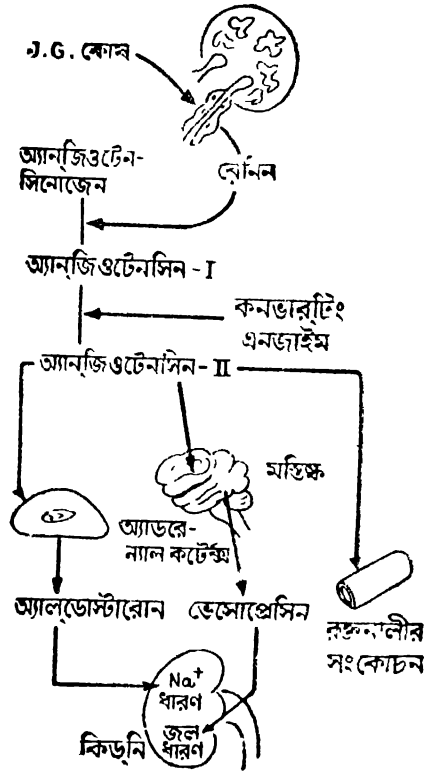 J.G. কোষ
অ্যান্‌জিওটেন-
সিনোজেন
রেনিন
অ্যান্‌জিওটেনসিন-I
কনভার্‌টিং
এনজাইম
অ্যান্‌জিওটেনসিন-II
মস্তিষ্ক
অ্যাডরে-
ন্যাল কর্টেক্স
অ্যাল্‌ডোস্টারোন
ভেসোপ্রেসিন
রক্তনালীর
সংকোচন
Na+
ধারণ
জল
ধারণ
কিড্‌নি